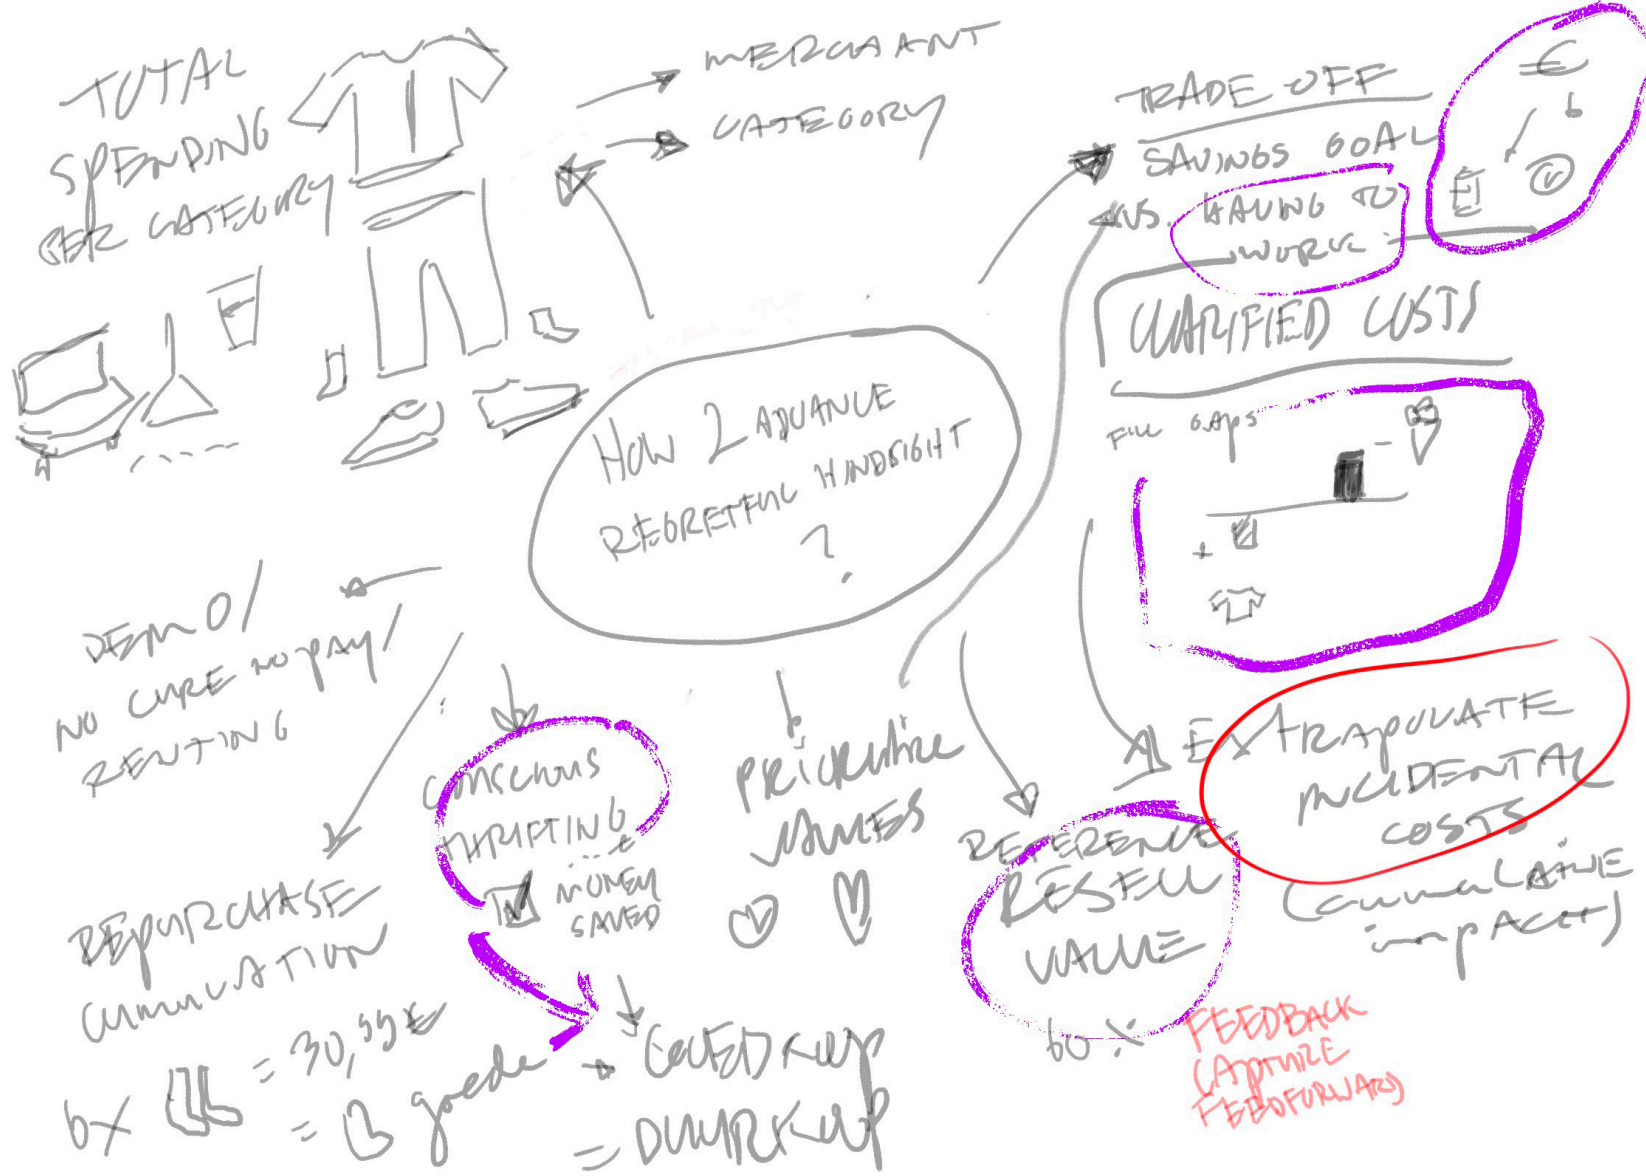 TOTAL
SPENDING
PER CATEGORY
MERCHANT
CATEGORY
TRADE OFF
SAVINGS GOAL
VS. HAVING TO
WORK
€
CLARIFIED COSTS
FILL GAPS
-
+
HOW 2 ADVANCE
REGRETFUL HINDSIGHT
?
DEMO/
NO CURE NO PAY/
RENTING
CONSCIOUS
THRIFTING
MONEY
SAVED
PRIORITIZE
VALUES
REFERENCE
RESELL
VALUE
60 %
EXTRAPOLATE
INCIDENTAL
COSTS
(CUMULATIVE
IMPACT)
REPURCHASE
CUMULATION
6x = 30,99€
= goede
→ GOEDKOOP
= DUURKOOP
FEEDBACK
CAPTURE
FEEDFORWARD